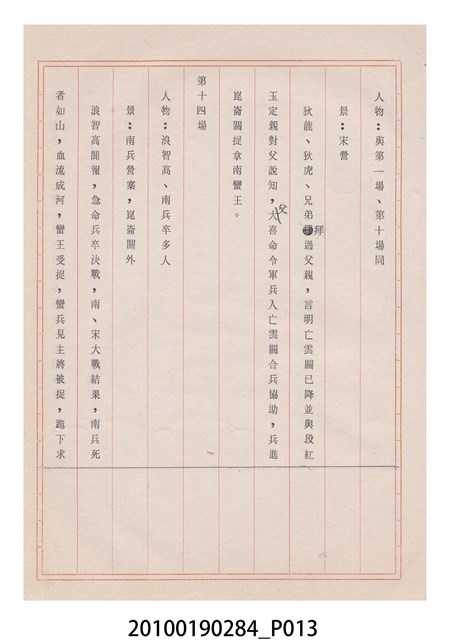 人物：與第一場、第十場同
景：宋營
狄龍、狄虎、兄弟拜過父親，言明亡雲關已降並與段紅
玉定親對父說知，父大喜命令軍兵入亡雲關合兵協助，兵進
崑崙關捉拿南蠻王。
第十四場
人物：浪智高、南兵卒多人
景：南兵營寨，崑崙關外
浪智高聞報，急命兵卒決戰，南、宋大戰結果，南兵死
者如山，血流成河，蠻王受捉，蠻兵見主將被捉，跪下求
20100190284_P013